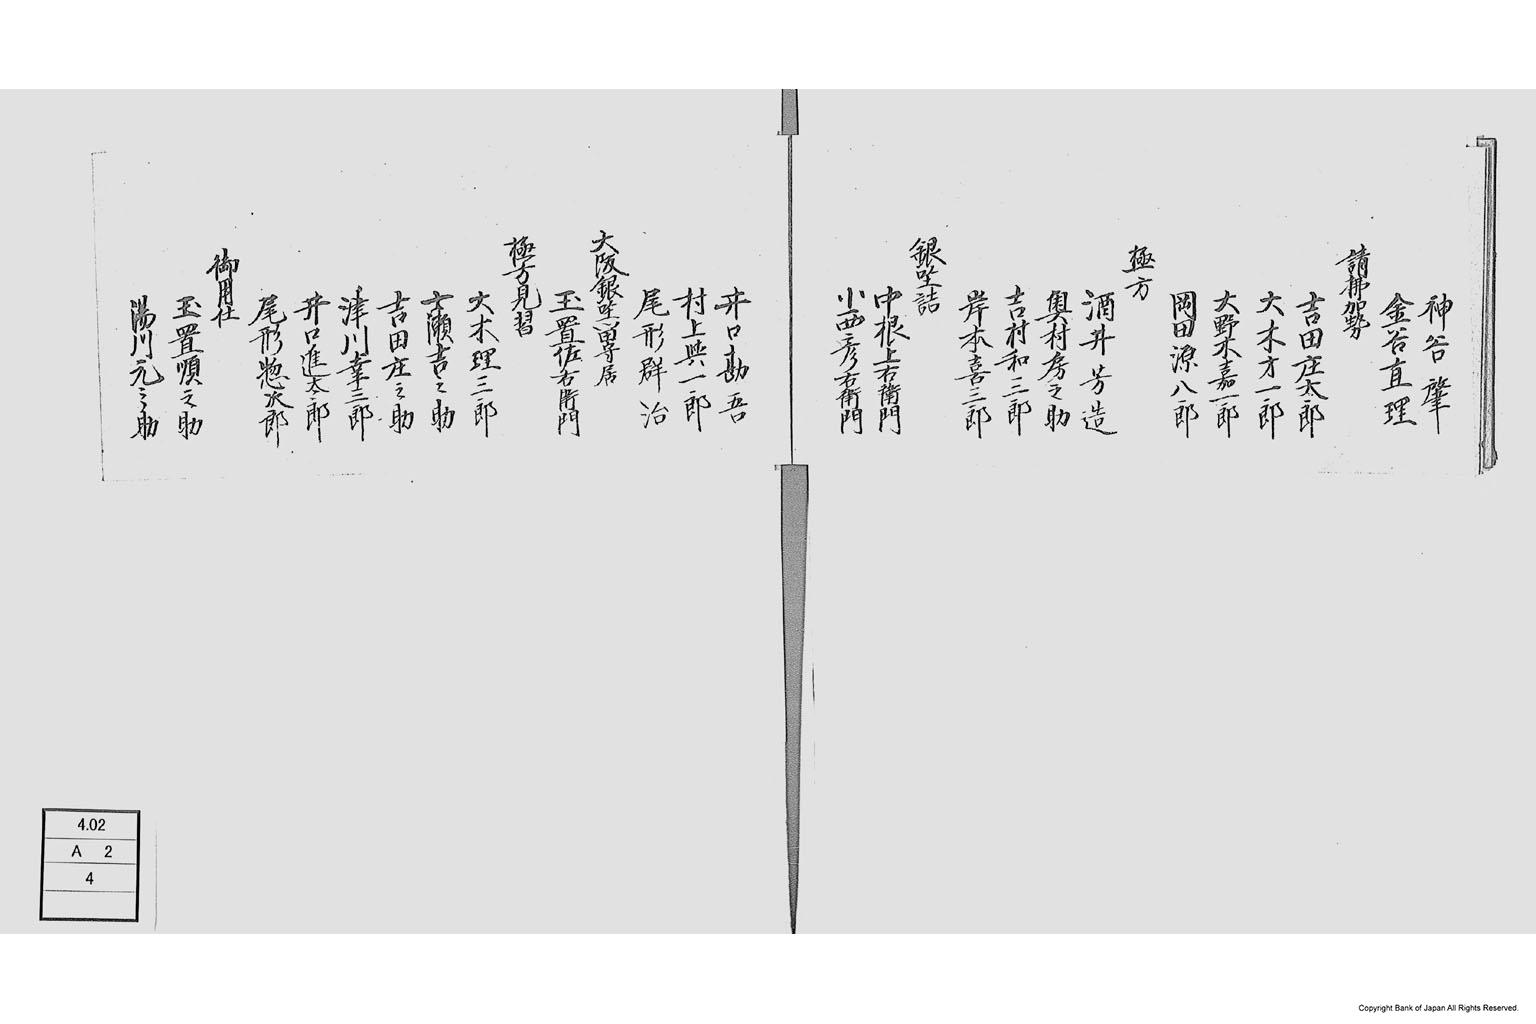 神谷肇
金谷直理
請都加勢
吉田庄太郎
大木才一郎
大野木嘉一郎
岡田源八郎
極方
酒井芳造
奥村房之助
吉村和三郎
岸本喜三郎
銀坐詰
中根上右衛門
小西彦右衛門
井口勘吾
村上與一郎
尾形群治
大阪銀坐留守居
玉置佐右衛門
極方見習
大木理三郎
七瀬吉之助
吉田庄之助
津川幸三郎
井口進太郎
尾形惣次郎
御用仕
玉置順之助
湯川元之助
4.02
A 2
4
Copyright Bank of Japan All Rights Reserved.